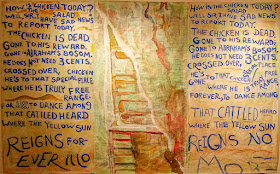 HOW IS CHICKEN TODAY?
SALAD
WELL, SIR, I HAVE SAD NEWS
TO REPORT TODAY.
THE CHICKEN IS DEAD,
GONE TO HIS REWARD,
GONE TO ABRAHAM'S BOSOM.
HE DOES NOT NEED 3 CENTS.
CROSSED OVER, CHICKEN
HE'S TO THAT SPECIAL PLACE
WHERE HE IS TRULY FREE
RANGE-
FOR TO DANCE AMONG
THAT CATTLED HEARD
WHERE THE YELLOW SUN
REIGNS FOR-
EVER ILLO
HOW IS CHICKEN TODAY?
SALAD
WELL SIR I HAVE SAD NEWS
TO REPORT TODAY.
THE CHICKEN IS DEAD
GONE TO HIS REWARD;
GONE TO ABRAHAM'S BOSOM.
HE DOES NOT NEED 3 CENTS.
CROSSED OVER, PLACE
HE'S TO THAT CHICKEN FREE
WHERE HE IS
FOREVER TO DANCE AMONG
THAT CATTLED HEARD
WHERE THE YELLOW SUN
REIGNS NO
MO